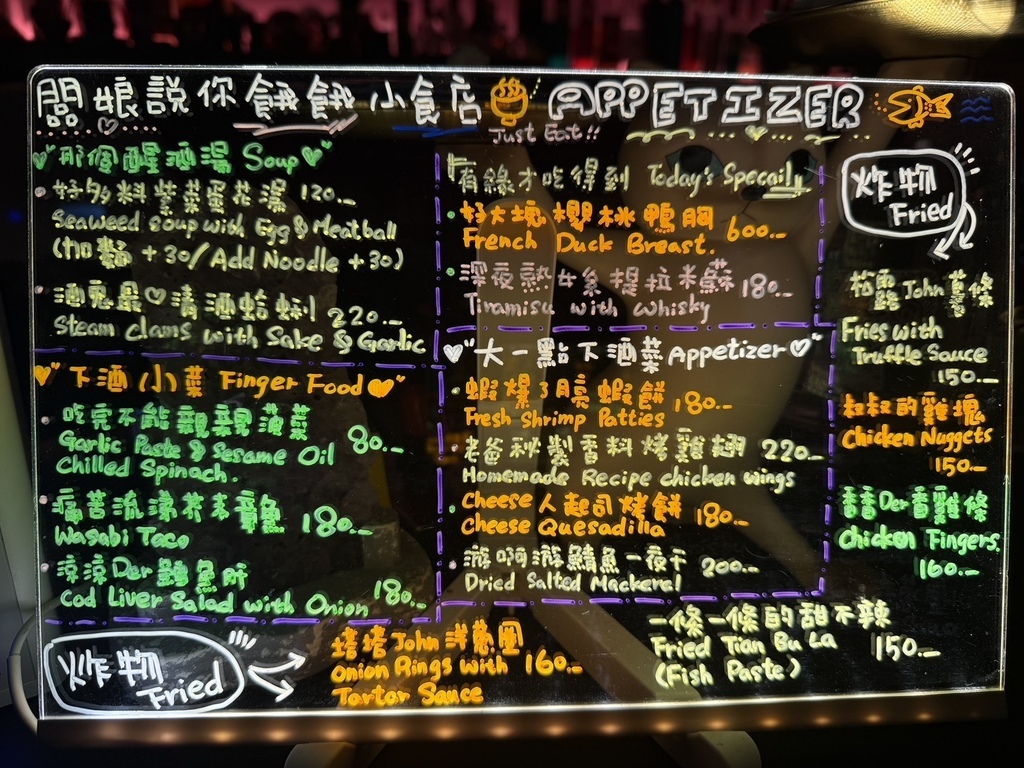 闆娘說你餓餓小食店 APPETIZER
Just Eat!!
那個醒酒湯 Soup
好多料紫菜蛋花湯 120.-
Seaweed soup with Egg & Meatball
(加麵 +30/Add Noodle +30)
酒鬼最♡清酒蛤蜊 220.-
Steam clams with Sake & Garlic
下酒小菜 Finger Food
吃完不能親親菠菜 80.-
Garlic Paste & Sesame Oil
Chilled Spinach.
痛苦流涕芥末章魚 180.-
Wasabi Taco
涼涼Der鱈魚肝
Cod Liver Salad with Onion 180.-
有緣才吃得到 Today's Specaily
好大塊櫻桃鴨胸
French Duck Breast. 600.-
深夜熟女系提拉米蘇 180.-
Tiramisu with Whisky
"大一點下酒菜 Appetizer♡"
蝦爆了月亮蝦餅 180.-
Fresh Shrimp Patties
老爸秘製香料烤雞翅 220.-
Homemade Recipe chicken wings
Cheese人起司烤餅 180.-
Cheese Quesadilla
游啊游鯖魚一夜干 200.-
Dried Salted Mackerel
炸物
Fried
松露John薯條
Fries with
Truffle Sauce
150.-
叔叔的雞塊
Chicken Nuggets
150.-
香香Der香雞條
Chicken Fingers.
160.-
炸物
Fried
John洋蔥圈
Onion Rings with 160.-
Tartar Sauce
一條一條的甜不辣
Fried Tian Bu La 150.-
(Fish Paste)